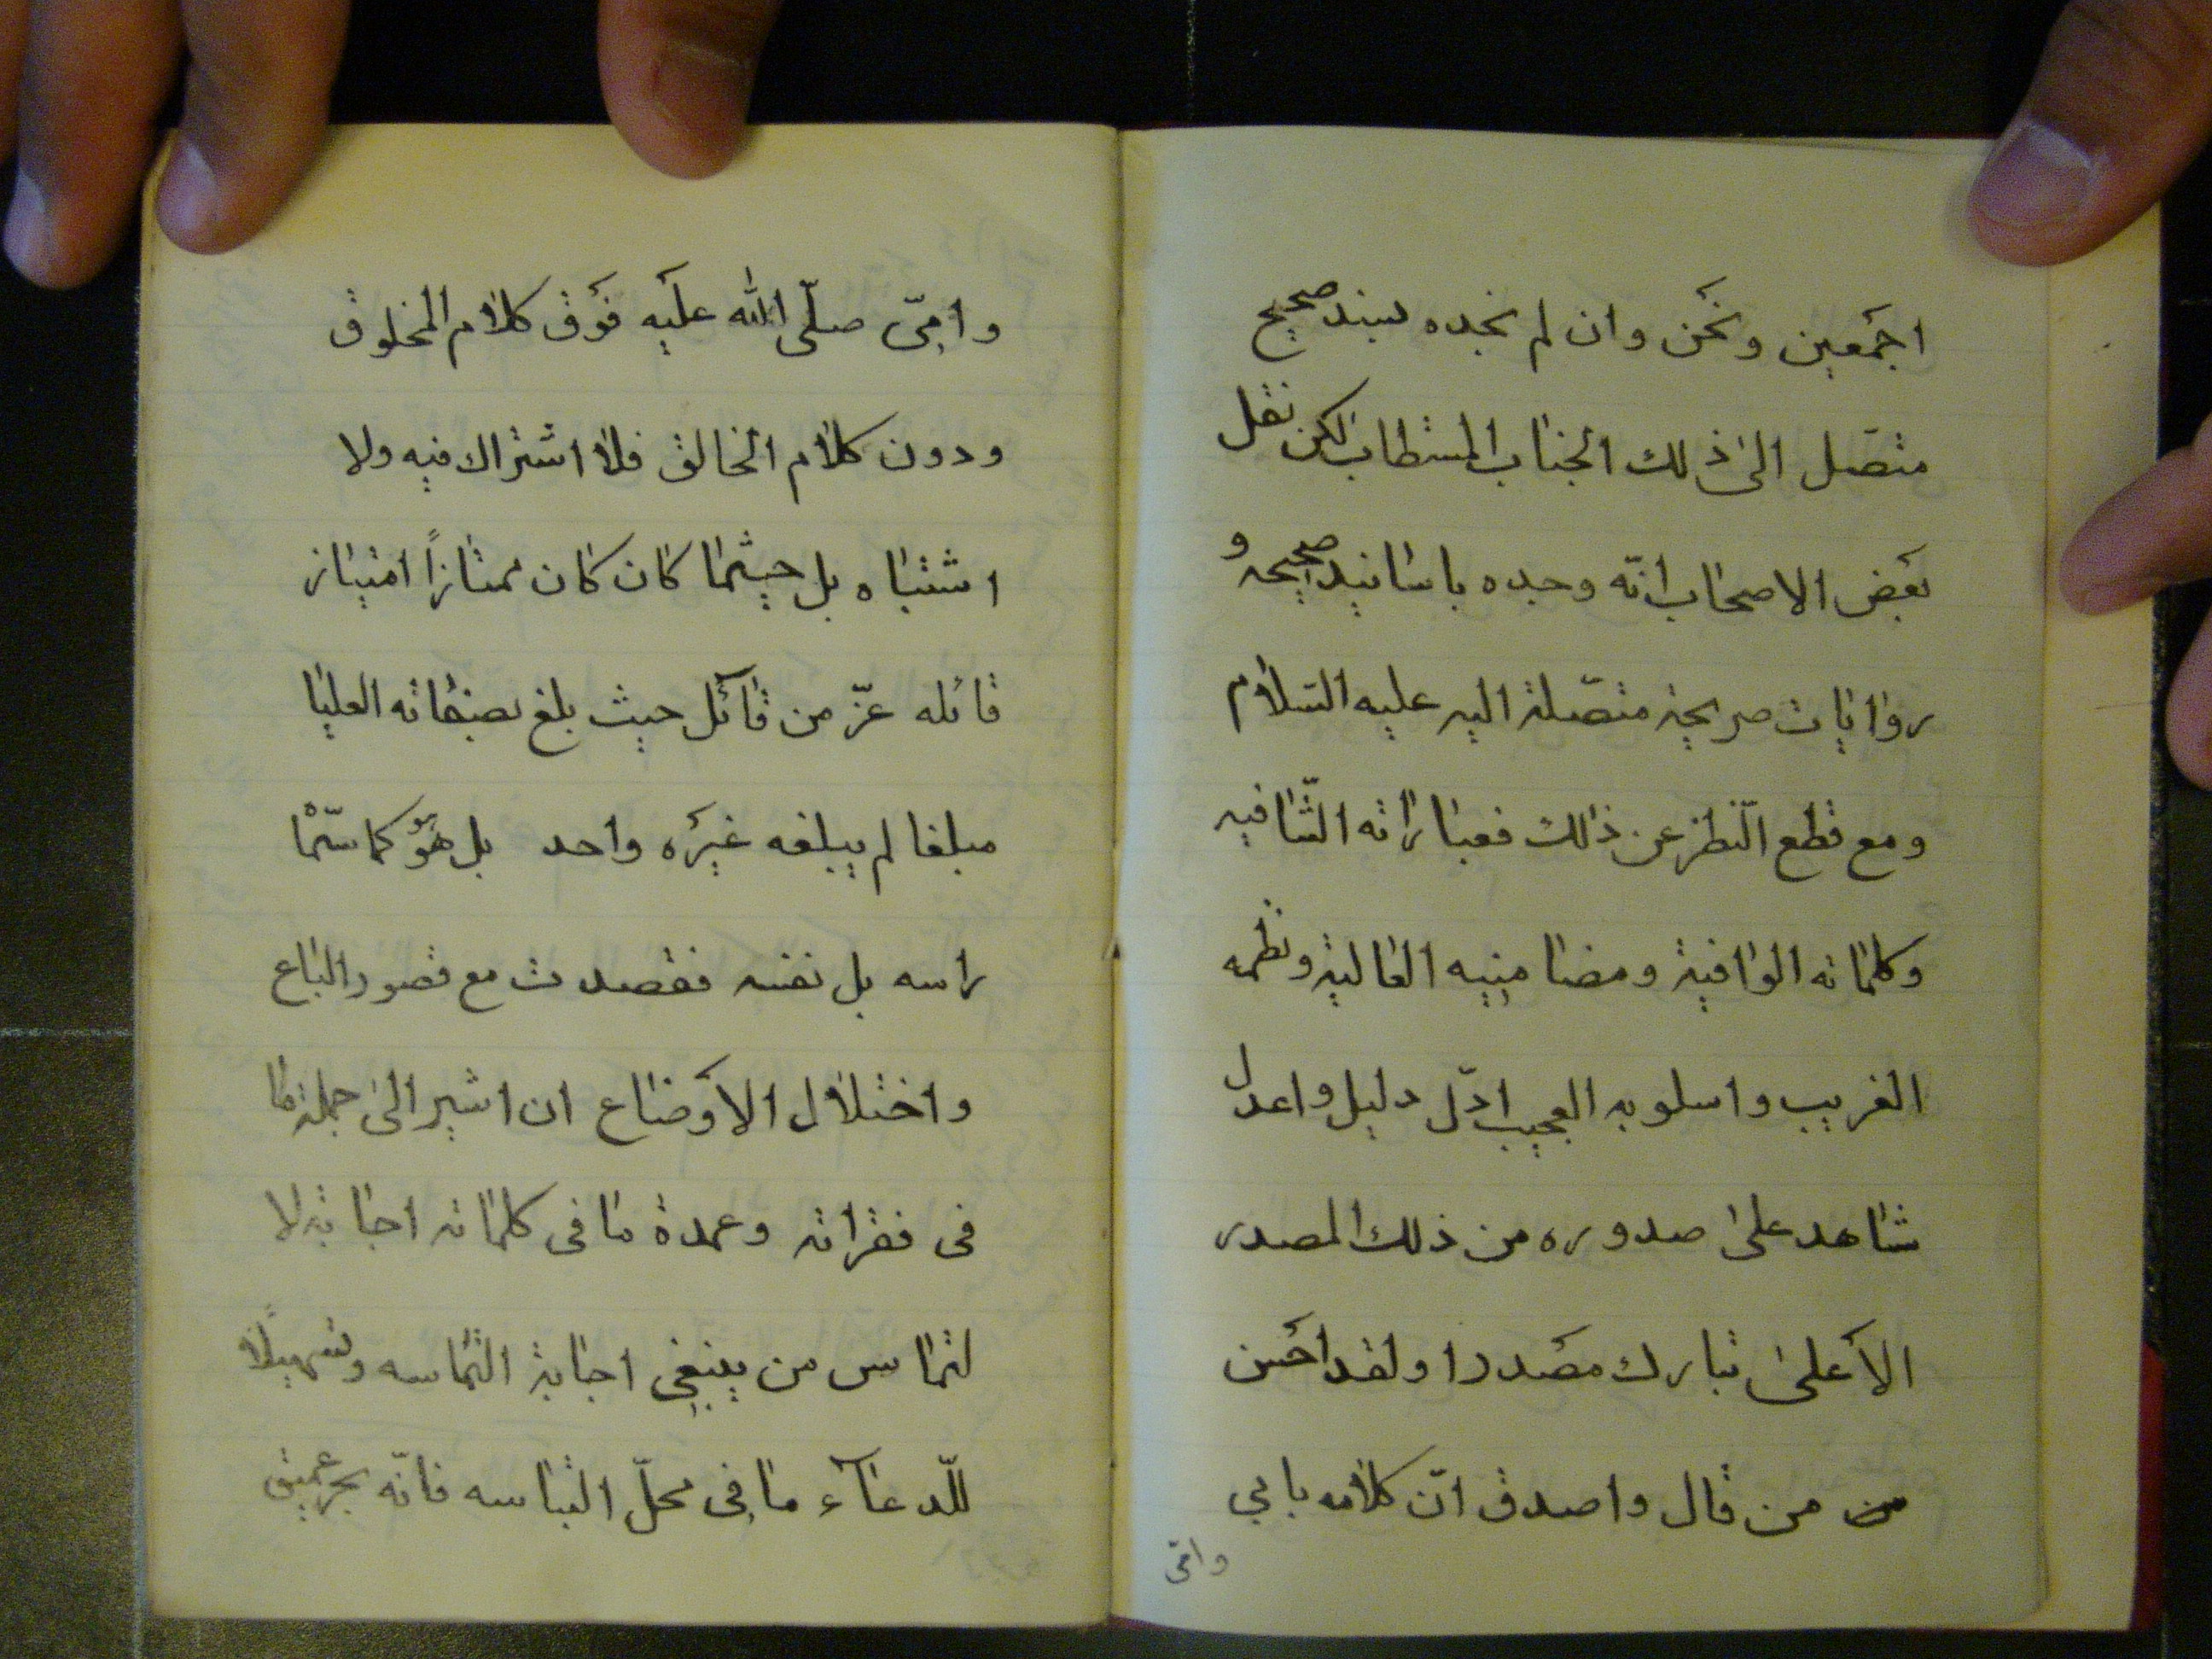 اجمَعين ونحَن وان لم نجده بسند صحيح
متصّل الىٰ ذلك الجناب المستطاب لكن نقل
بعَض الاصحاب انّه وجده باسانيد صحيحه و
روايات صريحة متصّلة اليه عليه السّلام
ومع قطع النّظر عن ذلك فعباراته الشّافيه
وكلماته الوافية ومضامينه العالية ونظمه
الغريب واسلوبه العجيب ادّل دليل واعدل
شاهد علىٰ صدوره من ذلك المصدر
الاَعلىٰ تبارك مصَدرا ولقد احَسن
من من قال واصدق انّ كلامه بابي
وامّى
وامّى صلّى الله عليَه فوَق كلام المخلوق
ودون كلام الخالق فلا اشتراك فيه ولا
اشتباه بل حيثما كان كان ممتازاً امتياز
قائله عزّ من قآئل حيث بلغ بصفاته العليا
مبلغا لم يبلغه غيرَه واحد بل هوَ كما سمّا
راسه بل نفسه فقصدت مع قصور الباع
واختلال الاوَضاع ان اشير الىٰ جملة ما
فى فقراته وعمدة ما فى كلماته اجابة لا
لتماس من ينبغى اجابة التماسه وتسهيلًا
للّدعآء ما فى محلّ التباسه فانّه بحر عميق